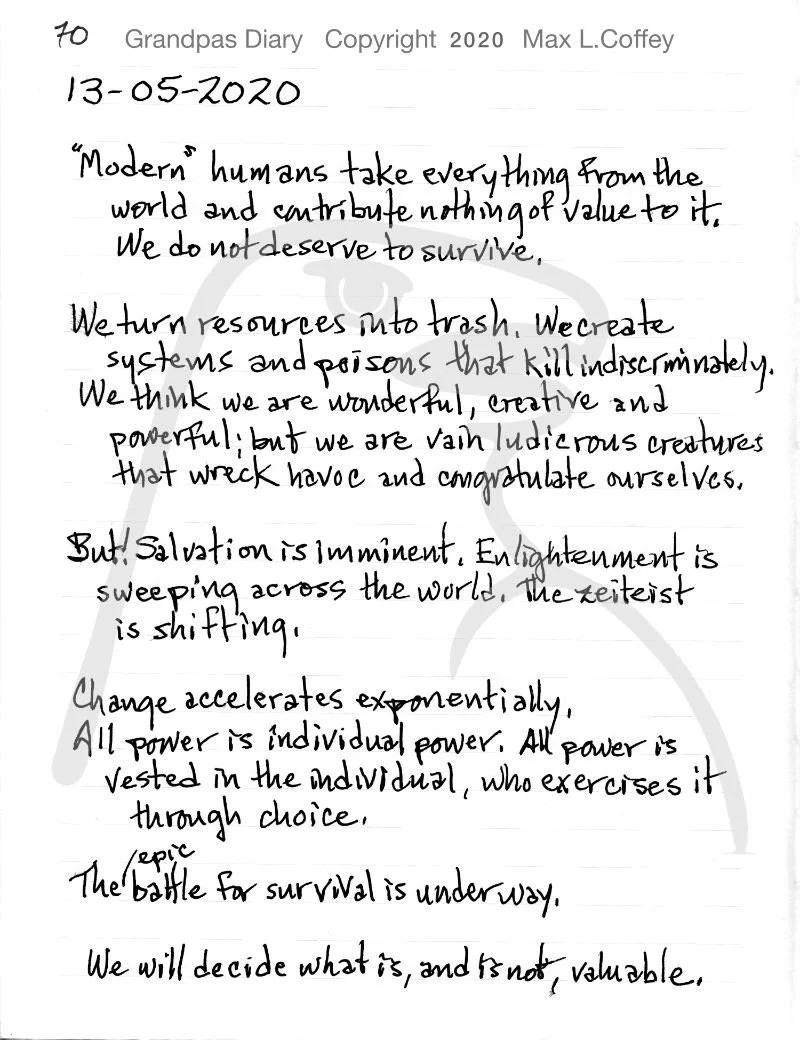 70 Grandpas Diary Copyright 2020 Max L.Coffey
13-05-2020
"Modern" humans take everything from the
world and contribute nothing of value to it.
We do not deserve to survive.
We turn resources into trash. We create
systems and poisons that kill indiscrminately.
We think we are wonderful, creative and
powerful; but we are vain ludicrous creatures
that wreck havoc and congratulate ourselves.
But! Salvation is imminent. Enlightenment is
sweeping across the world. The zeiteist
is shifting.
Change accelerates exponentially.
All power is individual power. All power is
vested in the individual, who exercises it
through choice.
The epic battle for survival is underway.
We will decide what is, and is not, valuable.